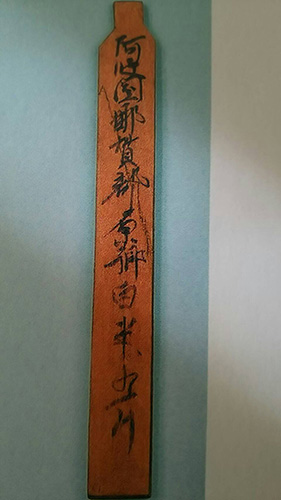 阿波国那賀郡郷白米五斗